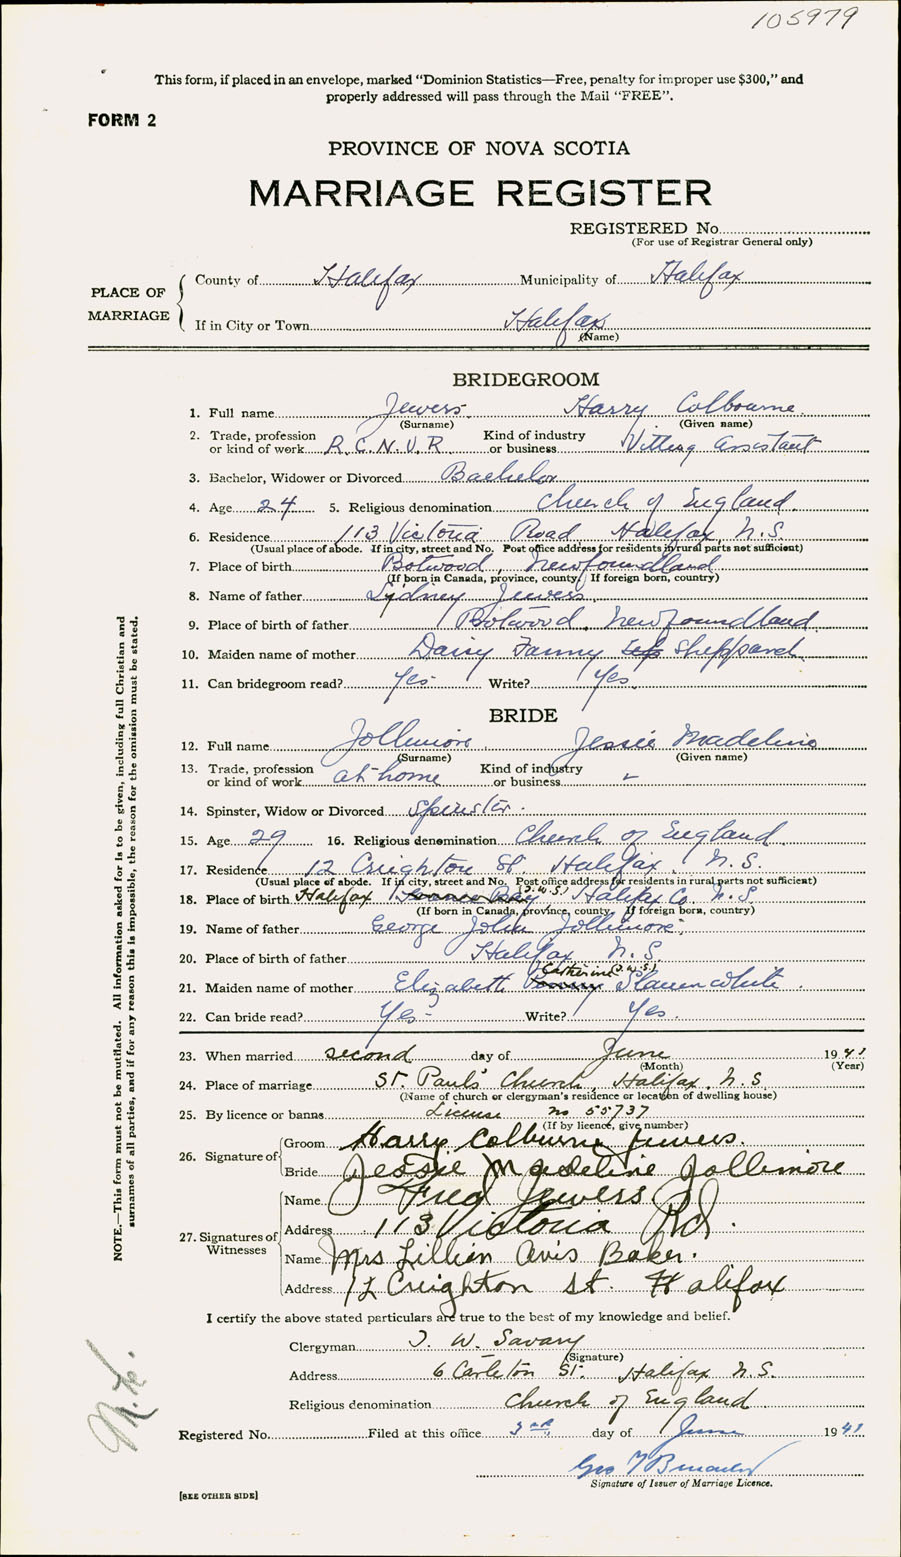 105979
This form, if placed in an envelope, marked "Dominion Statistics—Free, penalty for improper use $300," and
properly addressed will pass through the Mail "FREE".
FORM 2
PROVINCE OF NOVA SCOTIA
MARRIAGE REGISTER
REGISTERED No.
(For use of Registrar General only)
PLACE OF MARRIAGE
County of Halifax Municipality of Halifax
If in City or Town Halifax
(Name)
BRIDEGROOM
1. Full name Jewers. Harry Colbourne.
(Surname) (Given name)
2. Trade, profession or kind of work R.C.N.V.R Kind of industry or business Assistant
3. Bachelor, Widower or Divorced Bachelor
4. Age 24 5. Religious denomination Church of England.
6. Residence 113 Victoria Road Halifax, N.S.
(Usual place of abode. If in city, street and No. Post office address for residents in rural parts not sufficient)
7. Place of birth Botwood, Newfoundland
(If born in Canada, province, county. If foreign born, country)
8. Name of father Sydney Jewers.
9. Place of birth of father Botwood, Newfoundland
10. Maiden name of mother Daisy Fanny Sheppard
11. Can bridegroom read? Yes- Write? Yes.
BRIDE
12. Full name Jollimore, Jessie Madeline
(Surname) (Given name)
13. Trade, profession or kind of work at home Kind of industry or business
14. Spinster, Widow or Divorced Spinster.
15. Age 29 16. Religious denomination Church of England.
17. Residence 12 Creighton St Halifax, N.S.
(Usual place of abode. If in city, street and No. Post office address for residents in rural parts not sufficient)
18. Place of birth Halifax Halifax Co. N.S.
(If born in Canada, province, county. If foreign born, country)
19. Name of father George John Jollimore.
20. Place of birth of father Halifax N.S.
Catherine
21. Maiden name of mother Elizabeth Slauenwhite.
22. Can bride read? Yes- Write? Yes.
23. When married second day of June 1941
(Month) (Year)
24. Place of marriage St. Paul's Church, Halifax, N.S
(Name of church or clergyman's residence or location of dwelling house)
25. By licence or banns License no 55737
(If by licence, give number)
26. Signature of Groom Harry Colburne Jewers.
Bride Jessie Madeline Jollimore
27. Signatures of Witnesses Name Fred Jewers
Address 113 Victoria Rd.
Name Mrs Lillian Avis Baker.
Address 12 Creighton St. Halifax
I certify the above stated particulars are true to the best of my knowledge and belief.
Clergyman T. W. Savary
(Signature)
Address 6 Carleton St. Halifax N.S.
Religious denomination Church of England
Registered No. Filed at this office 3rd day of June 1941
Geo
Signature of Issuer of Marriage Licence.
[SEE OTHER SIDE]
NOTE.—This form must not be mutilated. All information asked for is to be given, including full Christian and
surnames of all parties, and if for any reason this is impossible, the reason for the omission must be stated.